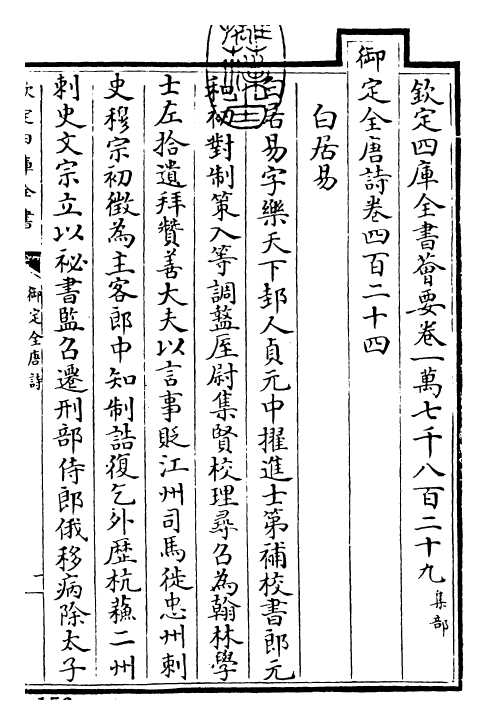 欽定四庫全書薈要卷一萬七千八百二十九 集部
御定全唐詩卷四百二十四
白居易
白居易字樂天下邽人貞元中擢進士第補校書郎元
和初對制策入等調盩厔尉集賢校理尋召為翰林學
士左拾遺拜贊善大夫以言事貶江州司馬徙忠州刺
史穆宗初徵為主客郎中知制誥復乞外歷杭蘇二州
刺史文宗立以祕書監召遷刑部侍郎俄移病除太子
欽定四庫全書
御定全唐詩
一